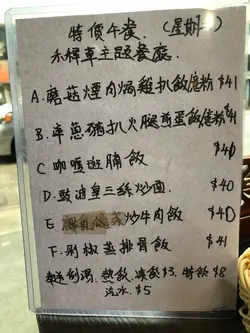 特價午餐.(星期二)
禾稈草主題餐廳.
A.蘑菇煙肉焗雞扒飯/意粉 $41
B.洋蔥豬扒火腿煎蛋飯/意粉 $41
C 咖喱斑腩飯 $40
D.豉油皇三絲炒面. $40
E 炒牛肉飯 $40
F.剁椒蒸排骨飯 $41
例湯,熱飲,凍飲$3.特飲$8
汽水.$5